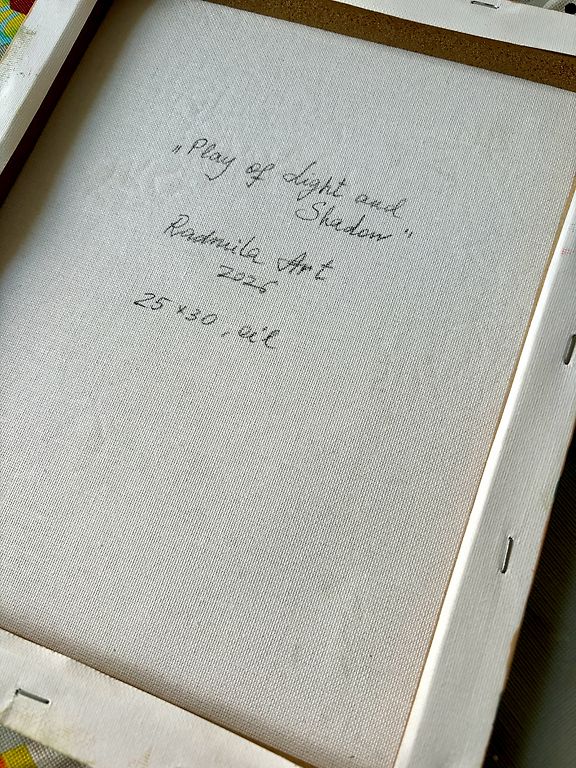 „Play of Light and
Shadow"
Radmila Art
2026
25x30, oil